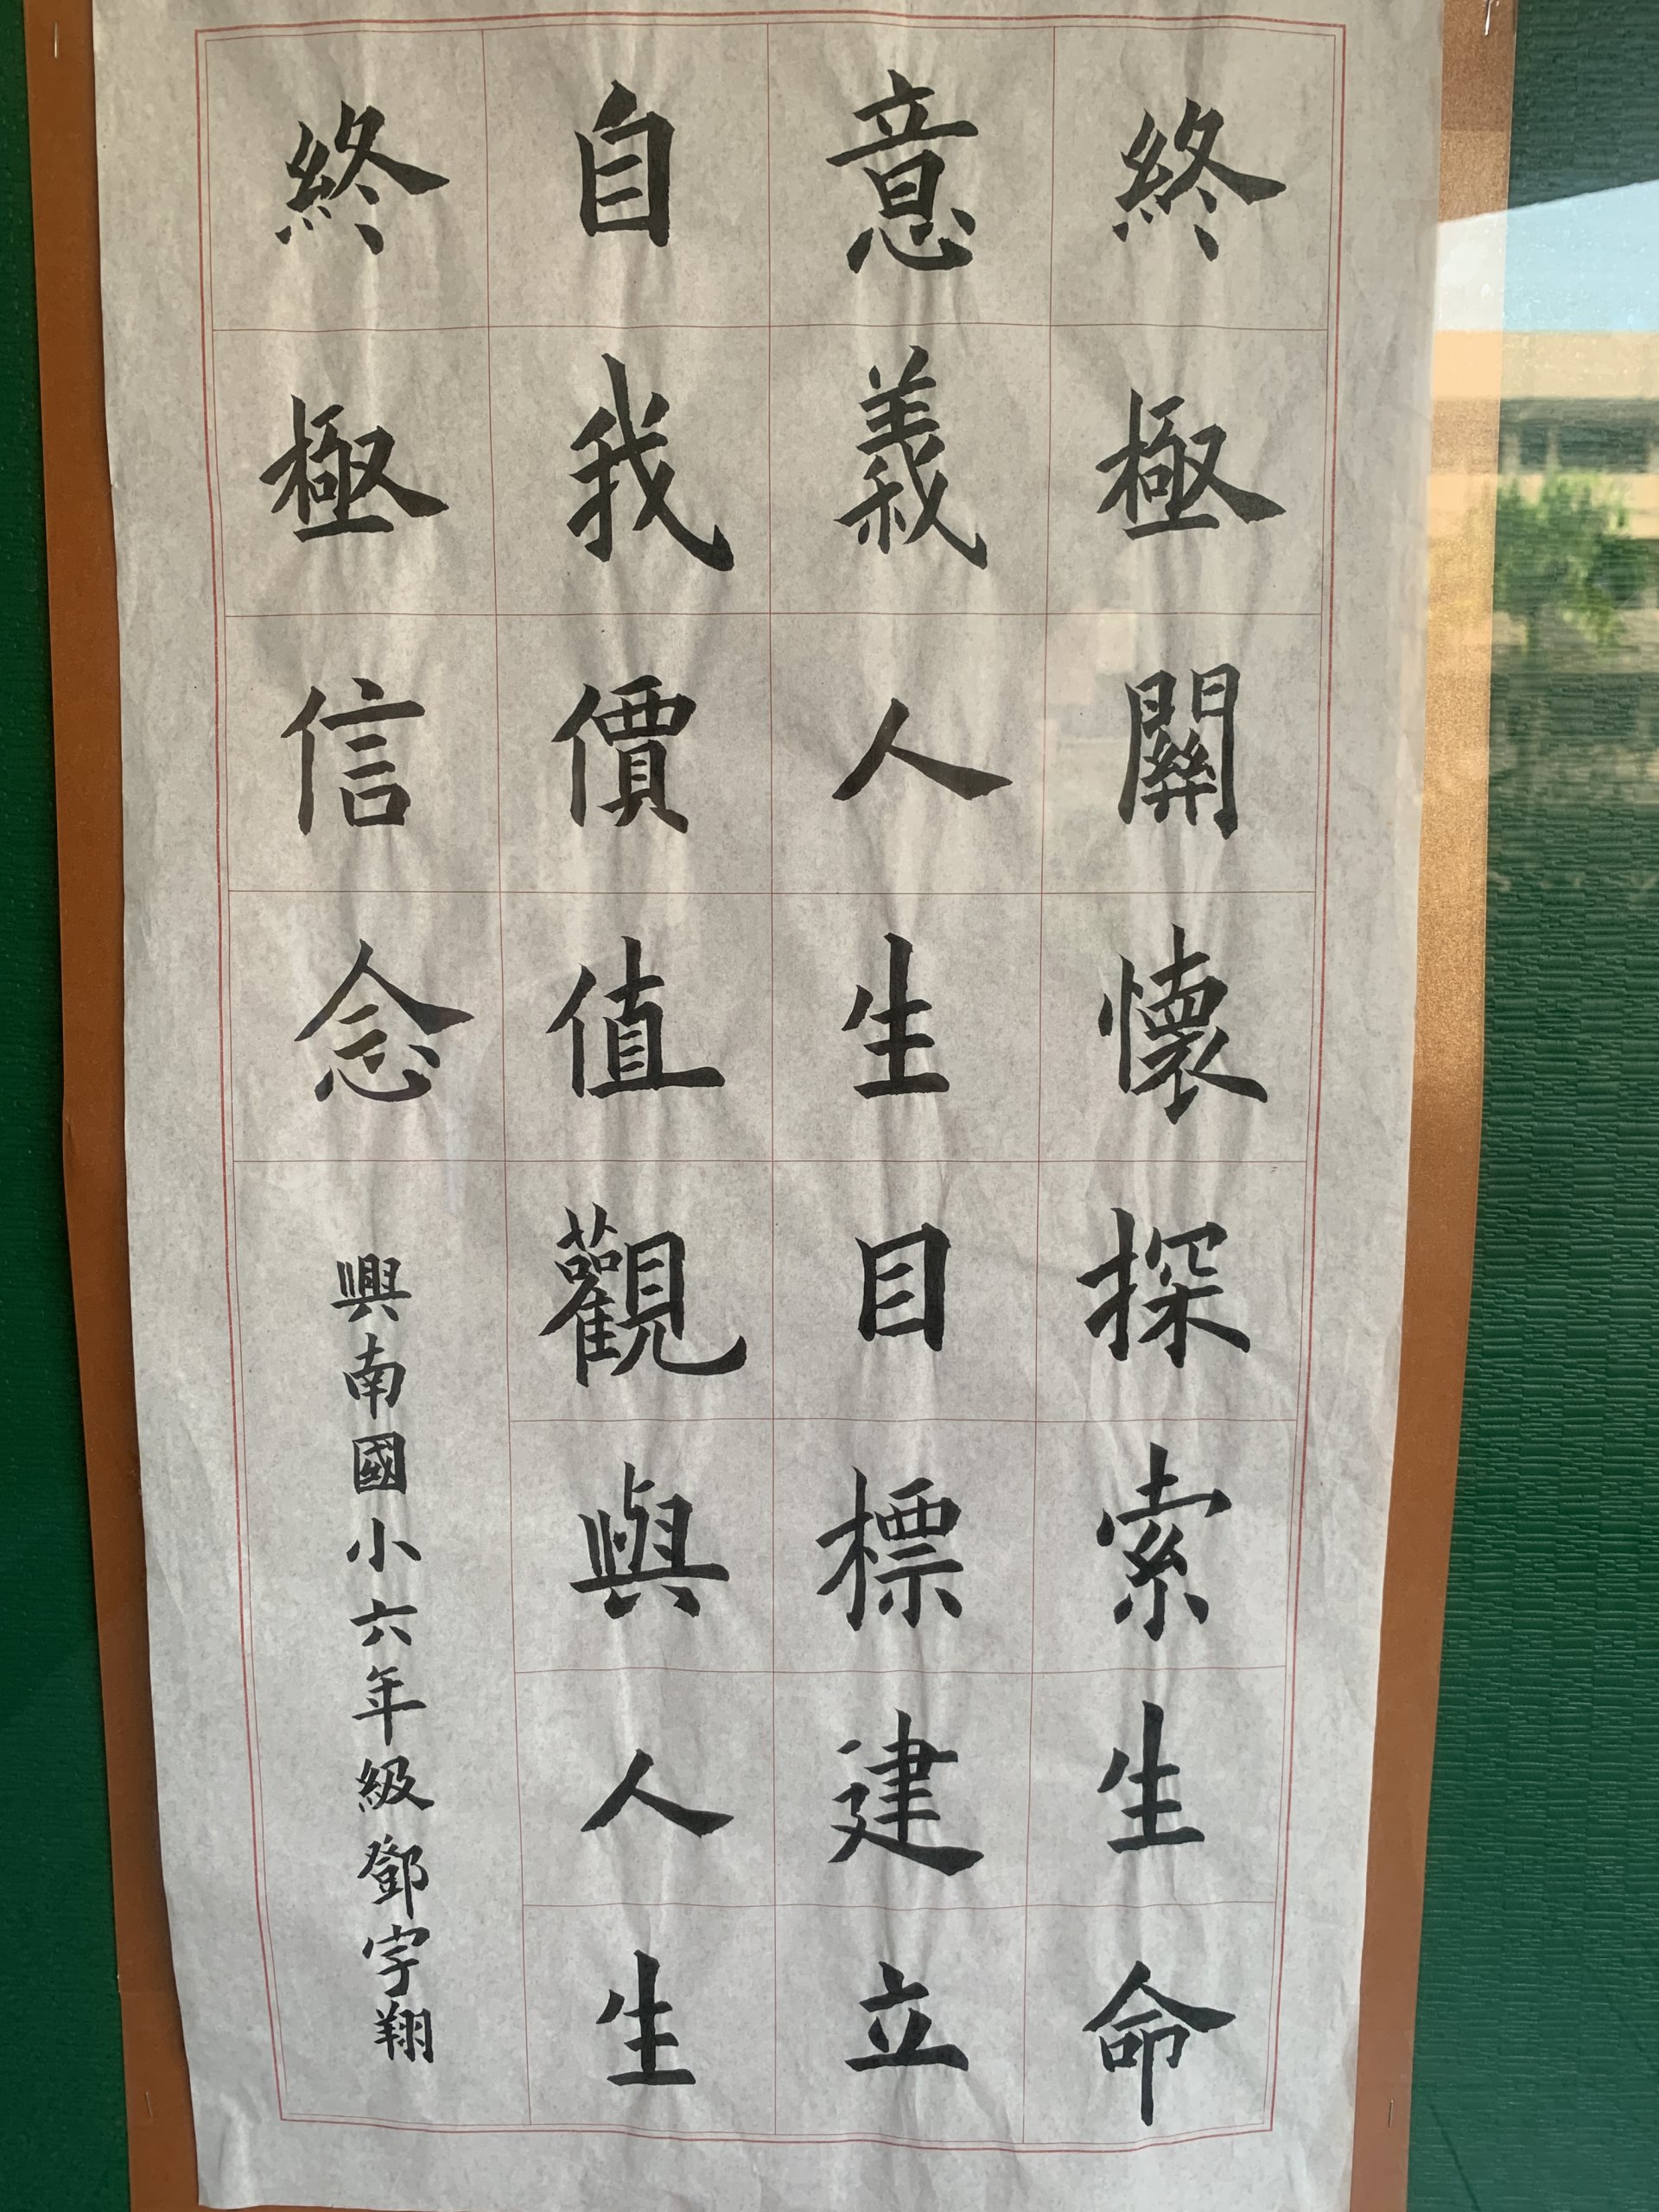 終極關懷探索生命
意義人生目標建立
自我價值觀與人生
終極信念
興南國小六年級鄧宇翔